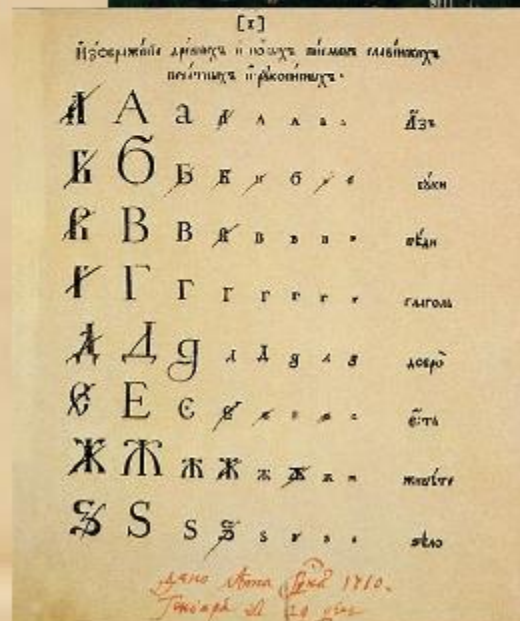 [1]
Изображение древнихъ и новыхъ писмен славенскихъ
печатныхъ и рукописныхъ.
А А а а А А а Азъ
Б Б Б Б б буки
В В В В в в в в вѣди
Г Г Г Г г г г г глаголь
Д Д д д Д д д д добро
Е Е е е е е е е есть
Ж Ж ж Ж ж ж ж ж живѣте
Ѕ Ѕ ѕ Ѕ ѕ ѕ ѕ ѕ ѕѣло
дано 1710.
Генваря 29